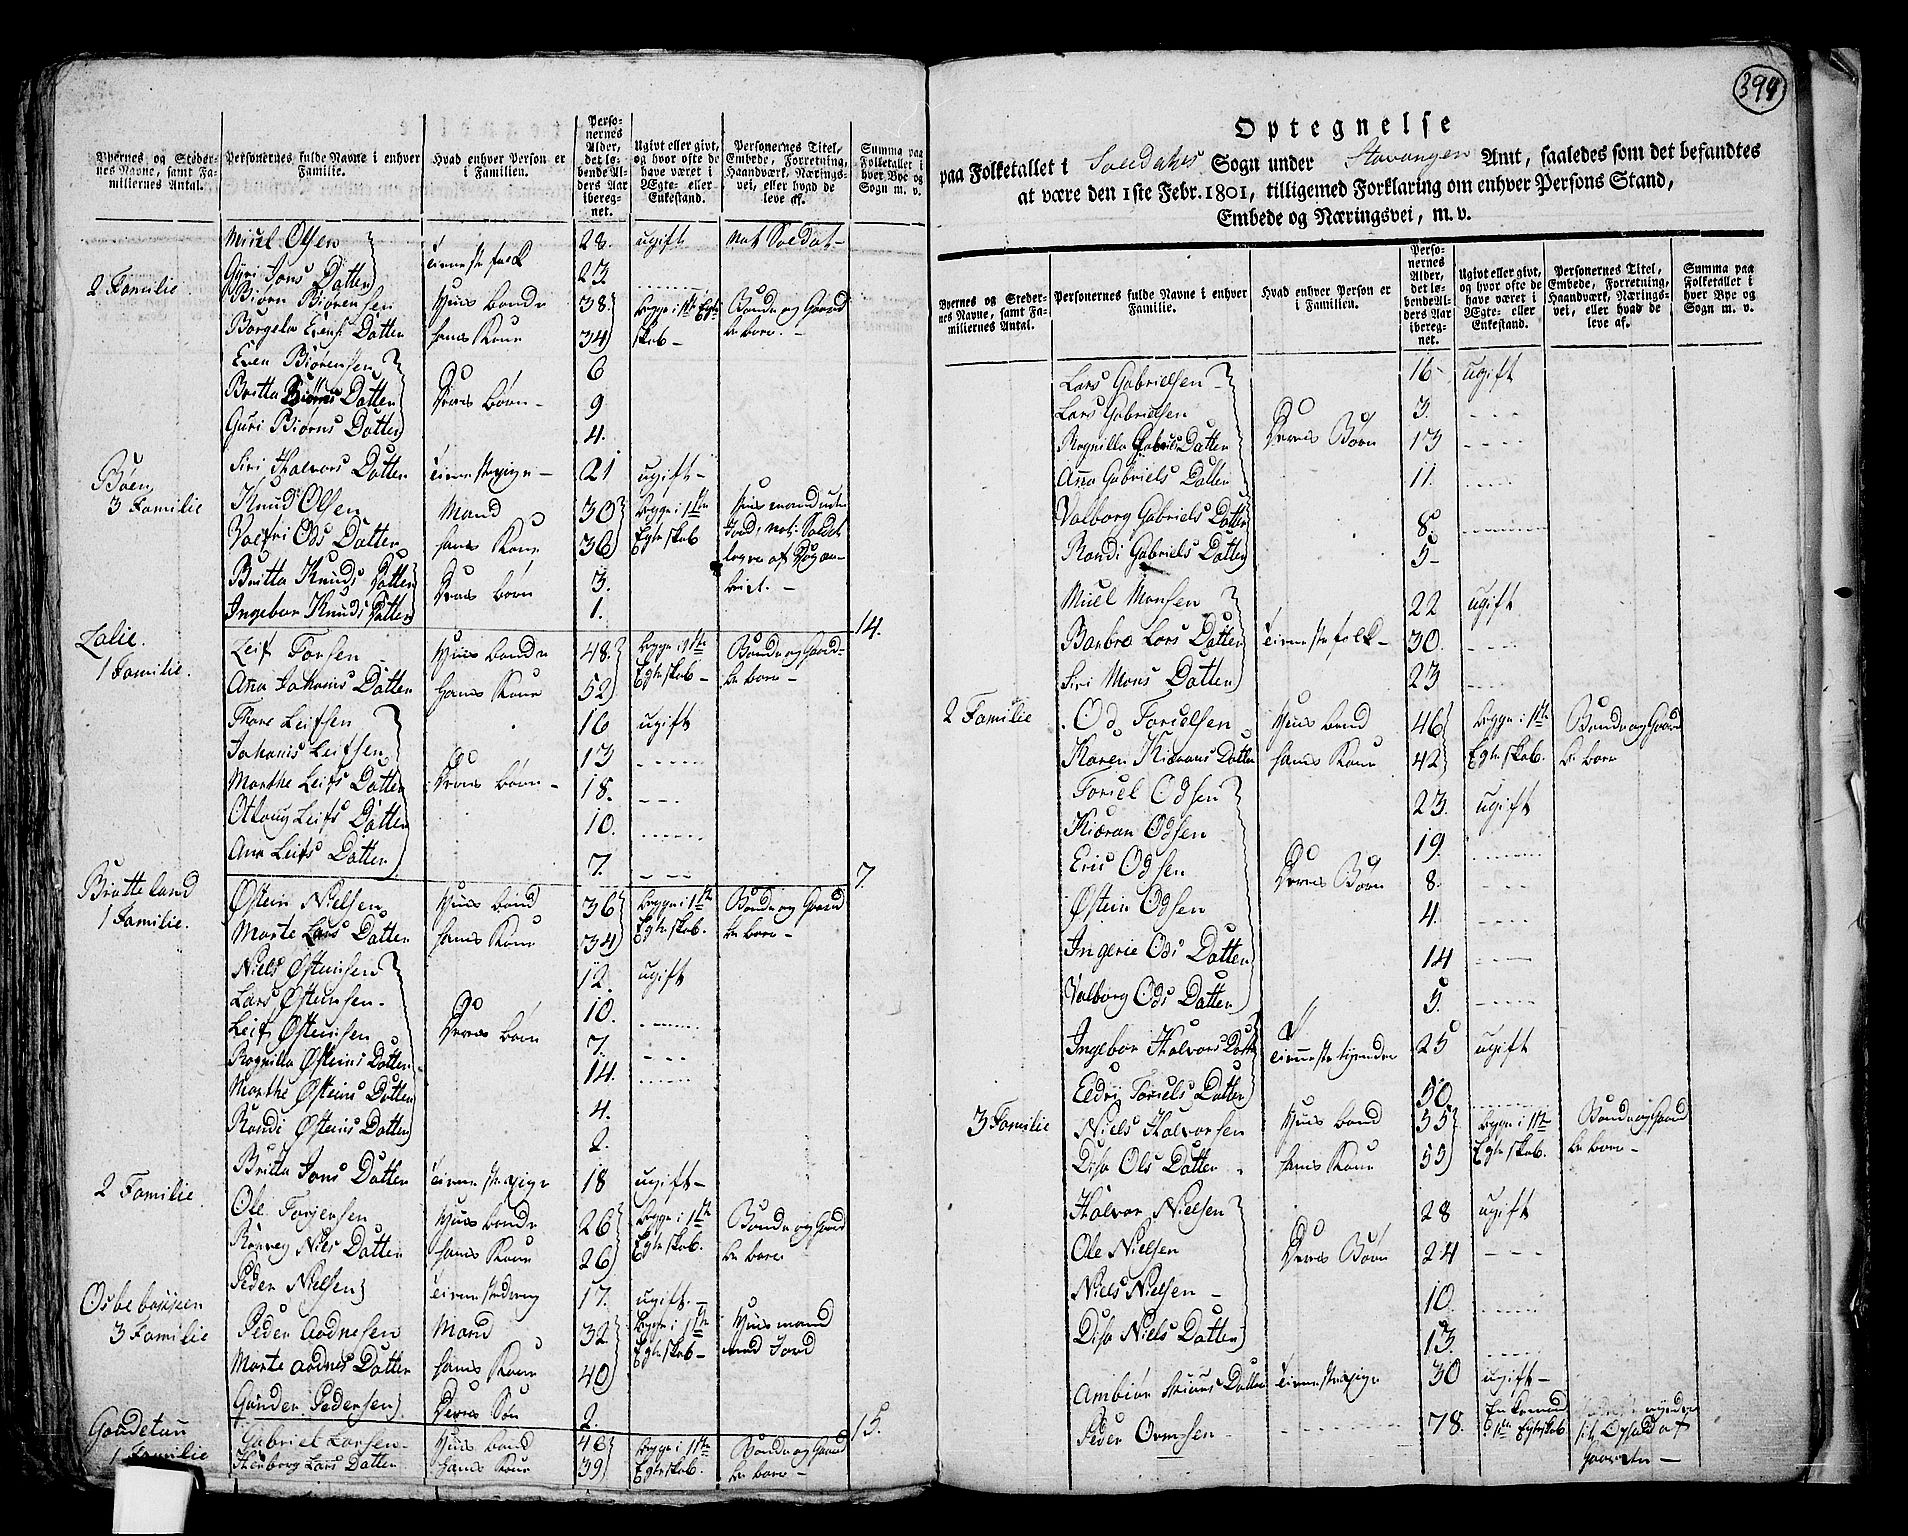 394
Byernes og Steder-
nes Navne, samt Fa-
miliernes Antal.
Personernes fulde Navne i enhver
Familie.
Hvad enhver Person er
i Familien.
Perso-
nernes
Alder,
det lø-
bende Al-
ders Aar
ibereg-
net.
Ugivt eller givt,
og hvor ofte de
have været i
Ægte- eller
Enkestand.
Personernes Titel,
Embede, Forretning,
Haandværk, Nærings-
vei, eller hvad de
leve af.
Summa paa
Folketallet i
hver Bye og
Sogn m. v.
Miuel Olsen 28. ugift Nat Soldat
Gyri Jons Datter tienestefolk 23
2 Familie Biørn Biørensen Huusbonde 38. begge i 1ste Egte Bonde og Gaard
Borgela Evens Datter hans Kone 34 skab beboer.
Even Biørensen 6
Britta Biørns Datter Deres børn 9
Guri Biørns Datter 4.
Siri Halvors Datter tienestepige 21 ugift
Bøen,
3 Familie Knud Olsen Mand 30 begge i 1ste Huusmand uden
Valfri Ods Datter hans Kone 36 Egteskab Jord, nat: Soldat
Britta Knuds Datter Deres børn 3.
Ingebor Knuds Datter 1.
14.
Lalie.
1 Familie. Leif Torsen Huusbonde 48. begge i 1ste Bonde og Gaard
Ana Johanis Datter hans Kone 52 Egteskab beboer
Thore Leifsen 16 ugift
Johanis Leifsen 13
Marthe Leifs Datter Deres børn 18.
Otloug Leifs Datter 10.
Ana Leifs Datter 7.
7.
Bratteland
1 Familie. Østein Nielsen Huusbond 36 begge i 1ste Bonde og Gaard
Marte Lars Datter hans Kone 34 Egteskab. beboer
Niels Østensen 12. ugift
Lars Østensen 10.
Leif Østensen Deres børn 7.
Ragnilla Østeins Datter 14.
Marthe Østeins Datter 4.
Randi Østeins Datter 2.
Britta Jons Datter tienestepige 18 ugift
2 Familie. Ole Torgersen Huusbonde 26 begge i 1ste Bonde og Gaard
Rønvey Niels Datter hans Kone 26 Egteskab. beboer
Peder Nielsen tienestedreng 17. ugift.
Osbebakken
3 Familie Peder Aadnesen Mand 32 begge i 1ste Huusmand
Marte Aadnes Datter hans Kone 40 Egteskab med Jord
Gunder Pedersen Deres Søn 2.
15.
Goudetun
1 Familie Gabriel Larsen Huusbond 48 begge i 1ste Bonde og Gaard
Lars Datter hans Kone 39 Egteskab. beboer
Optegnelse
paa Folketallet i Souldahls Sogn under Stavanger Amt, saaledes som det befandtes
at være den 1ste Febr. 1801, tilligemed Forklaring om enhver Persons Stand,
Embede og Næringsvei, m. v.
Byernes og Steder-
nes Navne, samt Fa-
miliernes Antal.
Personernes fulde Navne i enhver
Familie.
Hvad enhver Person er
i Familien.
Perso-
nernes
Alder,
det lø-
bende Al-
ders Aar
ibereg-
net.
Ugivt eller givt,
og hvor ofte de
have været i
Ægte- eller
Enkestand.
Personernes Titel,
Embede, Forretning,
Haandværk, Nærings-
vei, eller hvad de
leve af.
Summa paa
Folketallet i
hver Bye og
Sogn m. v.
Lars Gabrielsen 16 ugift
Lars Gabrielsen 3.
Ragnilla Gabriels Datter Deres Børn 13
Ana Gabriels Datter 11.
Valborg Gabriels Datter 8
Randi Gabriels Datter 5
Miuel Monsen 22 ugift
Barbro Lars Datter tienestefolk 30.
Siri Mons Datter 23
2 Familie Od Torielsen Huusbond 46 begge i 1ste Bonde og Gaard
Karen Kiærans Datter hans Kone 42 Egteskab. beboer
Toriel Odsen 23. ugift
Kiæran Odsen 19.
Eric Odsen Deres Børn 8.
Østein Odsen 4.
Ingerie Ods Datter 14
Valborg Ods Datter 5.
Ingebor Halvors Datter tienestetyende 25 ugift
Eldri Toriels Datter 50
3 Familie Niels Halvorsen Huusbond 55 begge i 1ste Bonde og Gaard
Disa Ols Datter hans Kone 55 Egteskab. beboer
Halvor Nielsen 28 ugift
Ole Nielsen Deres Børn 24
Niels Nielsen 10.
Disa Niels Datter 13.
Ambiør Datter tienestepige 30 ugift
Peder Ormsen 78. Enkemand